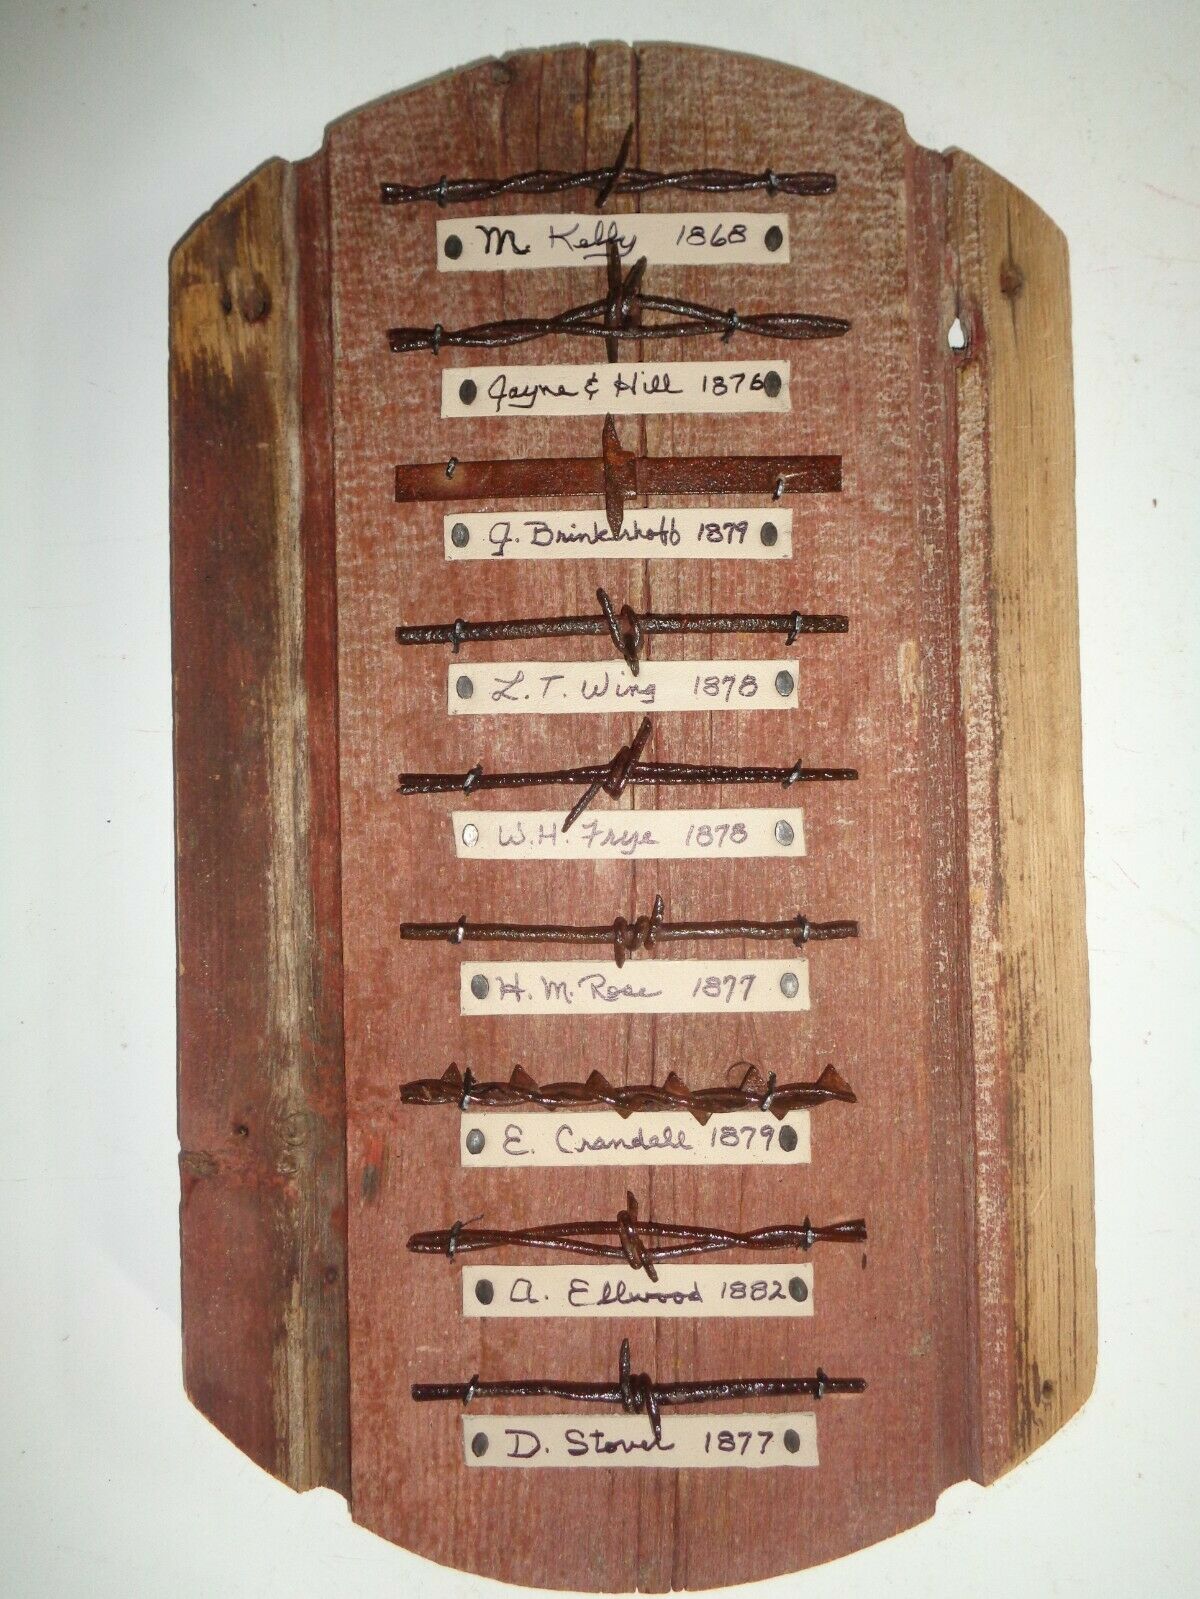 M. Kelly 1868
Jayne & Hill 1876
J. Brinkerhoff 1879
L. T. Wing 1878
W.H. Frye 1878
H. M. Rose 1877
E. Crandall 1879
A. Ellwood 1882
D. Stover 1877